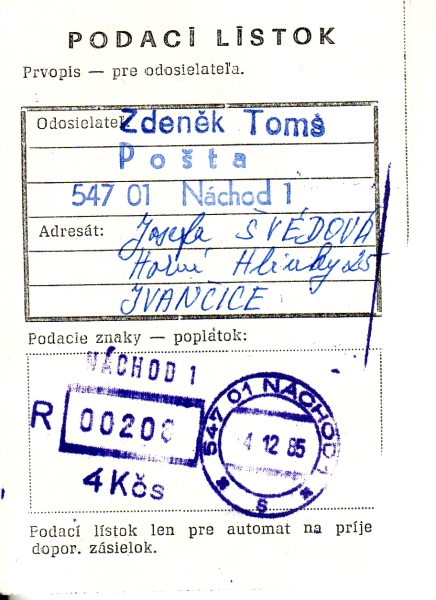 PODACÍ LÍSTOK
Prvopis — pre odosielateľa.
Odosielateľ Zdeněk Toms
Pošta
547 01 Náchod 1
Adresát: Josefa ŠVÉDOVÁ
Horní Hlinky 25
IVANČICE
Podacie znaky — poplátok:
NÁCHOD 1
R 00208
4 Kčs
547 01 NÁCHOD 1
4 12 85
s
Podací lístok len pre automat na príje
dopor. zásielok.